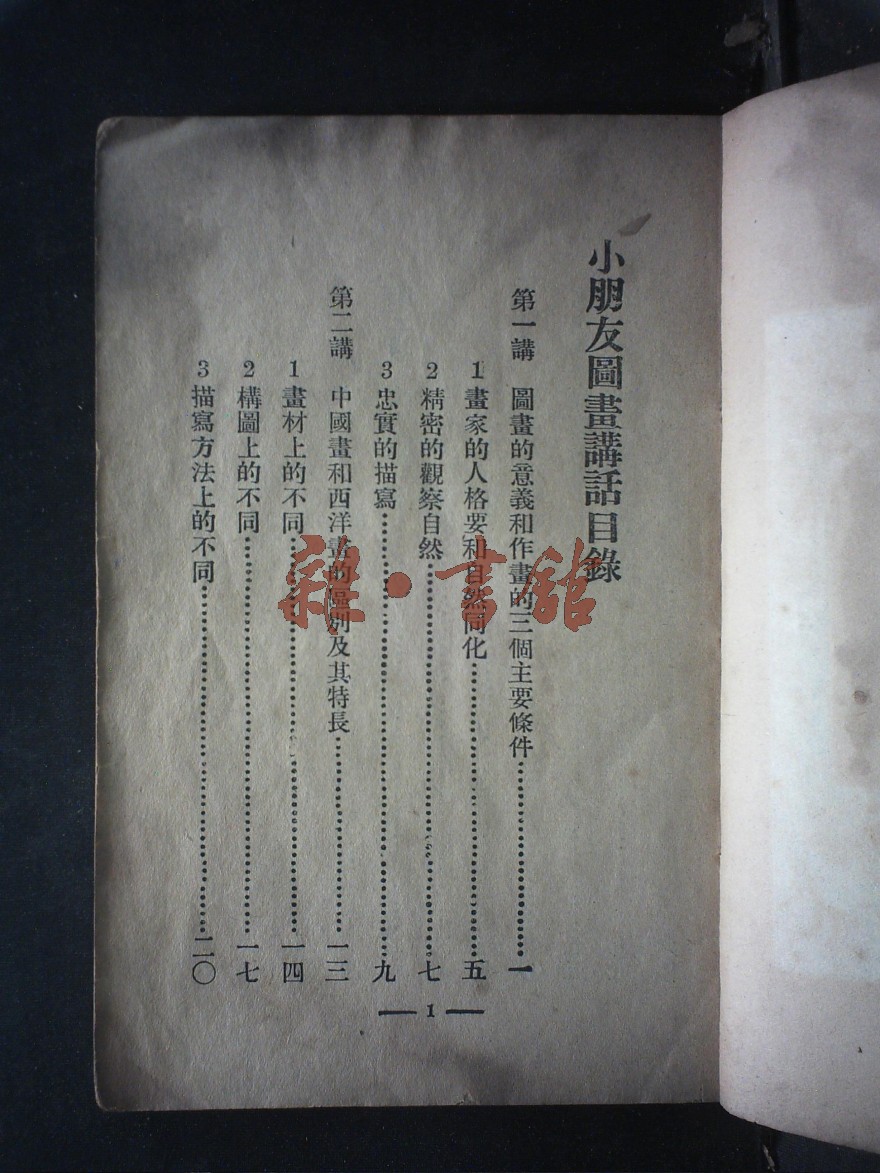 小朋友圖畫講話目錄
第一講　圖畫的意義和作畫的三個主要條件……………………一
1 畫家的人格要和自然同化……………………五
2 精密的觀察自然……………………七
3 忠實的描寫……………………九
第二講　中國畫和西洋畫的區別及其特長……………………一三
1 畫材上的不同……………………一四
2 構圖上的不同……………………一七
3 描寫方法上的不同……………………二〇
— 1 —
雜·書館